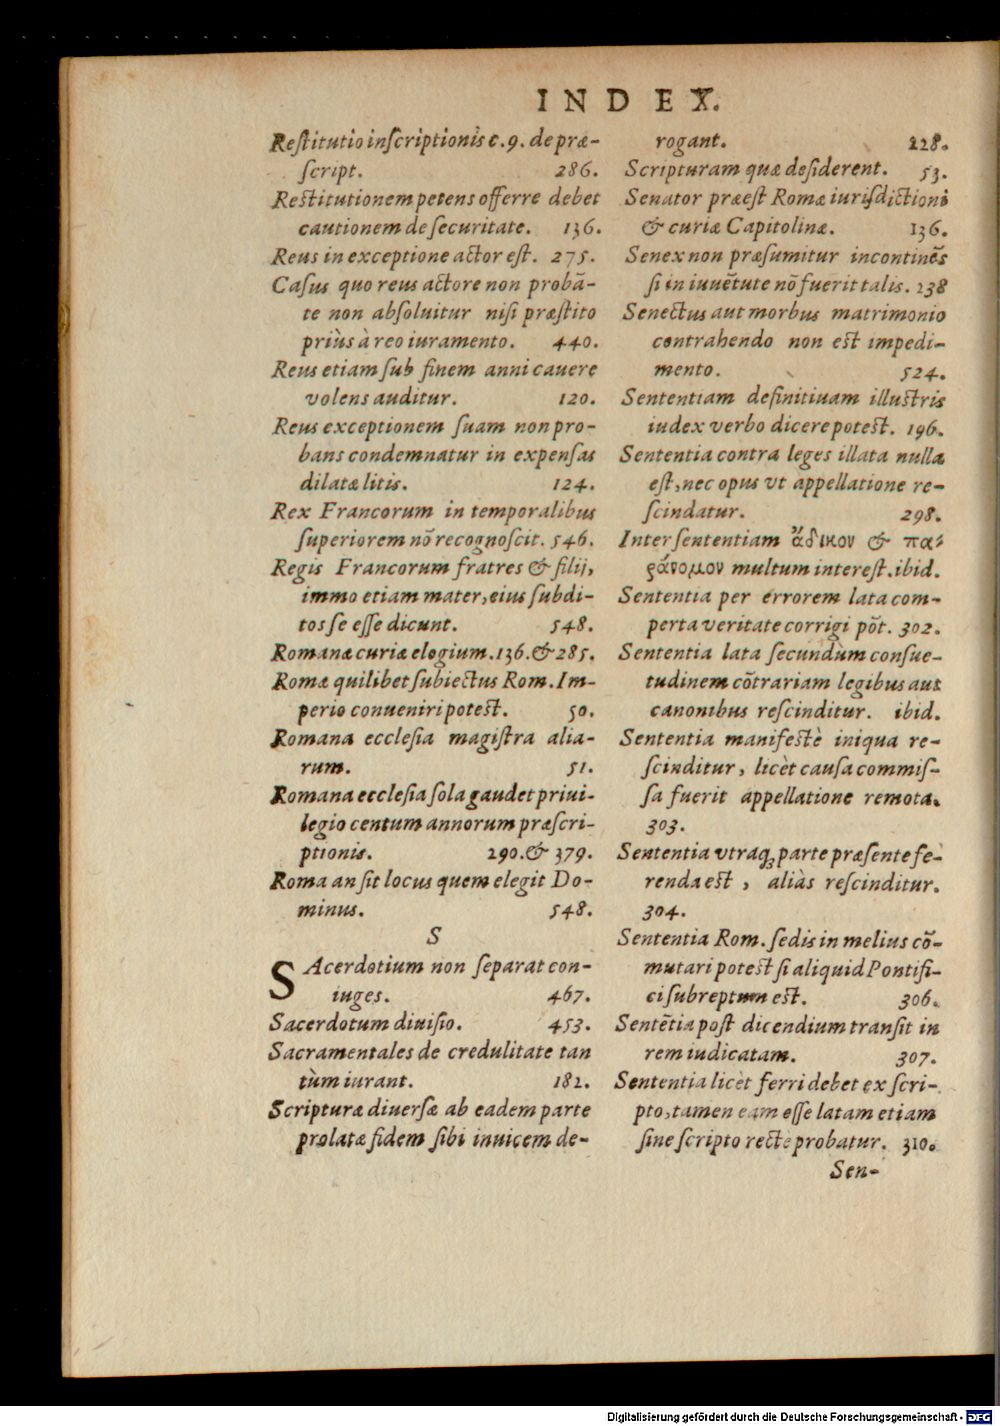 INDEX.
Restitutio inscriptionis c. 9. de præ-
script. 286.
Restitutionem petens offerre debet
cautionem de securitate. 136.
Reus in exceptione actor est. 275.
Casus quo reus actore non probā-
te non absoluitur nisi præstito
priùs à reo iuramento. 440.
Reus etiam sub finem anni cauere
volens auditur. 120.
Reus exceptionem suam non pro-
bans condemnatur in expensas
dilatæ litis. 124.
Rex Francorum in temporalibus
superiorem nō recognoscit. 546.
Regis Francorum fratres & filij,
immo etiam mater, eius subdi-
tos se esse dicunt. 548.
Romanæ curiæ elogium. 136. & 285.
Romæ quilibet subiectus Rom. Im-
perio conueniri potest. 50.
Romana ecclesia magistra alia-
rum. 51.
Romana ecclesia sola gaudet priui-
legio centum annorum præscri-
ptionis. 290. & 379.
Roma an sit locus quem elegit Do-
minus. 548.
S
SAcerdotium non separat con-
iuges. 467.
Sacerdotum diuisio. 453.
Sacramentales de credulitate tan
tùm iurant. 182.
Scripturæ diuersæ ab eadem parte
prolatæ fidem sibi inuicem de-
rogant. 228.
Scripturam quæ desiderent. 53.
Senator præest Romæ iurisdictioni
& curiæ Capitolinæ. 136.
Senex non præsumitur incontinēs
si in iuuētute nō fuerit talis. 238
Senectus aut morbus matrimonio
contrahendo non est impedi-
mento. 524.
Sententiam definitiuam illustris
iudex verbo dicere potest. 196.
Sententia contra leges illata nulla
est, nec opus vt appellatione re-
scindatur. 298.
Inter sententiam ἄδικον & πα-
ράνομον multum interest. ibid.
Sententia per errorem lata com-
perta veritate corrigi pōt. 302.
Sententia lata secundùm consue-
tudinem cōtrariam legibus aut
canonibus rescinditur. ibid.
Sententia manifestè iniqua re-
scinditur, licèt causa commis-
sa fuerit appellatione remota.
303.
Sententia vtraq; parte præsente fe-
renda est, aliàs rescinditur.
304.
Sententia Rom. sedis in melius cō-
mutari potest si aliquid Pontifi-
ci subreptum est. 306.
Sentētia post dicendium transit in
rem iudicatam. 307.
Sententia licèt ferri debet ex scri-
pto, tamen eam esse latam etiam
sine scripto recte probatur. 310.
Sen-
Digitalisierung gefördert durch die Deutsche Forschungsgemeinschaft - DFG